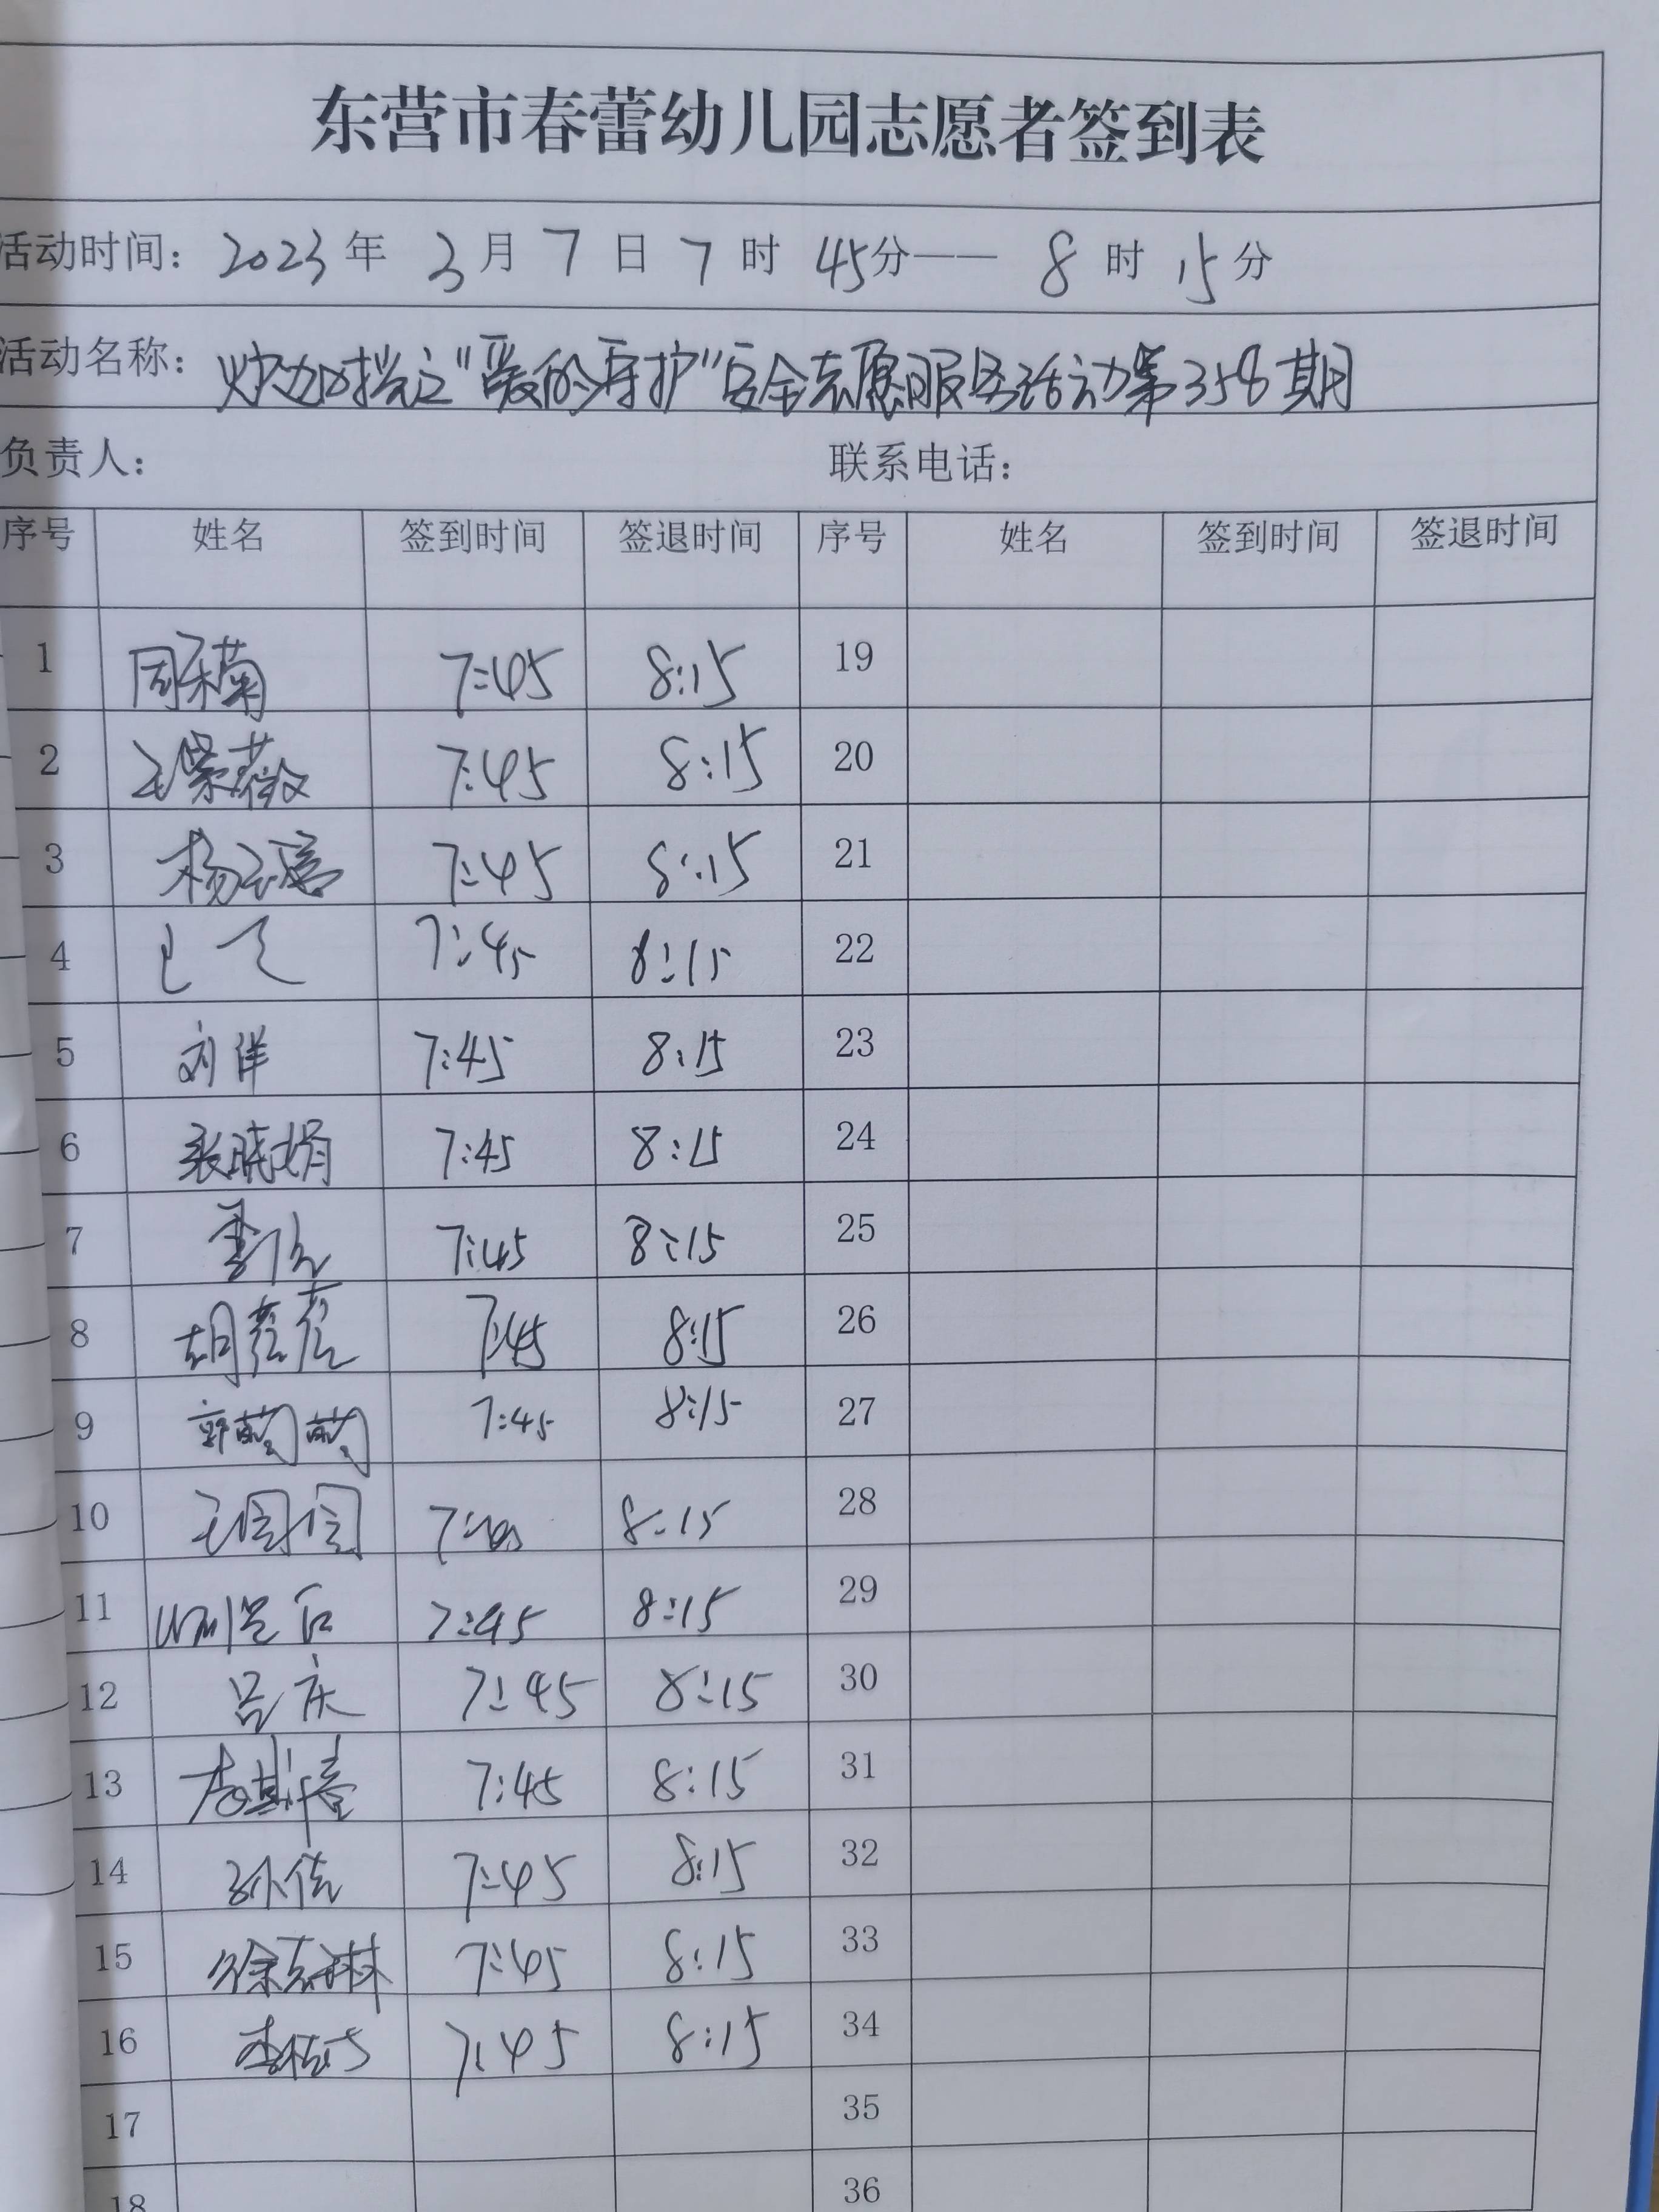 东营市春蕾幼儿园志愿者签到表
活动时间：2023年 3月 7日 7时 45分—— 8时 15分
活动名称："爱的守护"安全志愿服务活动第358期
负责人： 联系电话：
序号 姓名 签到时间 签退时间 序号 姓名 签到时间 签退时间
1 7:45 8:15 19
2 王紫薇 7:45 8:15 20
3 杨 7:45 8:15 21
4 7:45 8:15 22
5 刘洋 7:45 8:15 23
6 张晓娟 7:45 8:15 24
7 7:45 8:15 25
8 胡 7:45 8:15 26
9 郭萌萌 7:45 8:15 27
10 王 8:15 28
11 7:45 8:15 29
12 吕庆 7:45 8:15 30
13 李 7:45 8:15 31
14 孙倩 7:45 8:15 32
15 徐 琳 7:45 8:15 33
16 李 7:45 8:15 34
17 35
18 36